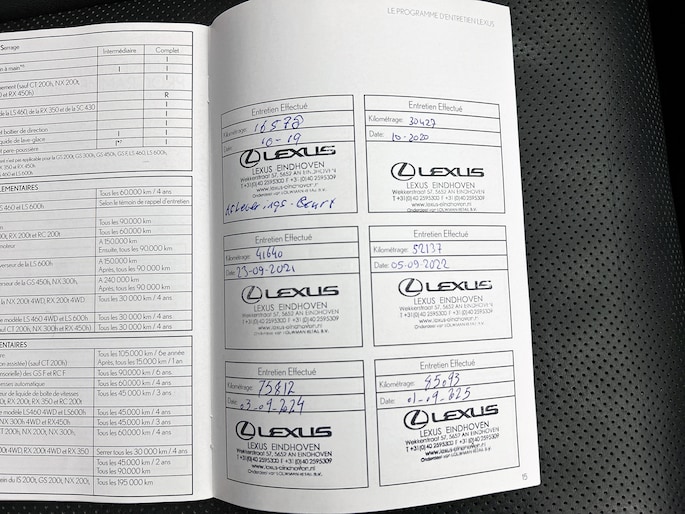 Serrage
Intermédiaire
Complet
à main*¹
I
I
I
nement (sauf CT 200h, NX 200t,
I
et RX 450h)
R
de la LS 460, de la RX 350 et de la SC 430
I
I
et boîtier de direction
I
I
quide de lave-glace
I
et pare-poussière
I
LÉMENTAIRES
Tous les 60.000 km / 4 ans
LS 460 et LS 600h
Selon le témoin de rappel d'entretien
Tous les 90.000 km
200t, RX 200t et RC 200t
Tous les 60.000 km
moteur
À 150.000 km
Ensuite, tous les 90.000 km
verseur de la LS 600h
À 150.000 km
Après, tous les 90.000 km
verseur de la GS 450h, NX 300h,
À 240.000 km
Après, tous les 90.000 km
la NX 200t 4WD, RX 200t 4WD
Tous les 30 000 km / 4 ans
e modèle LS 460 4WD et LS 600h
Tous les 30 000 km / 4 ans
sauf CT 200h, NX 300h et RX 450h)
Tous les 30 000 km / 4 ans
ENTAIRES
Tous les 105.000 km / 6e année
on-assistée) (sauf CT 200h)
Après, tous les 15.000 km / 1 an
des GS F et RC F
Tous les 90.000 km / 6 ans.
esses automatique
Tous les 60.000 km / 4 ans
eur de liquide de boîte de vitesses
Tous les 45.000 km / 3 ans
200t, RX 200t, RX 350 et RC 200t)
e modèle LS 460 4WD et LS 600h
Tous les 45.000 km / 4 ans
NX 300h 4WD et RX 450h)
Tous les 45.000 km / 2 ans
CT 200h, NX 200t, NX 300h,
Tous les 60.000 km / 4 ans
200t 4WD, RX 200t 4WD et RX 350
Serrer tous les 30 000 km / 4 ans
Tous les 45.000 km / 2 ans
Tous les 90.000 km
ein du IS 200t, GS 200t, NX 200t,
Tous les 195 000 km
LE PROGRAMME D'ENTRETIEN LEXUS
Entretien Effectué
Kilométrage: 16578
Date: 10-19
LEXUS
LEXUS EINDHOVEN
Wekkerstraat 57, 5652 AN EINDHOVEN
T +31(0)40 2595300 F +31(0)40 2595309
www.lexus-eindhoven.nl
Onderdeel van LOUWMAN RETAIL B.V.
Afleverings-Beurt
Entretien Effectué
Kilométrage: 30427
Date: 10-2020
LEXUS
LEXUS EINDHOVEN
Wekkerstraat 57, 5652 AN EINDHOVEN
T +31(0)40 2595300 F +31(0)40 2595309
www.lexus-eindhoven.nl
Onderdeel van LOUWMAN RETAIL B.V.
Entretien Effectué
Kilométrage: 41640
Date: 23-09-2021
LEXUS
LEXUS EINDHOVEN
Wekkerstraat 57, 5652 AN EINDHOVEN
T +31(0)40 2595300 F +31(0)40 2595309
www.lexus-eindhoven.nl
Onderdeel van LOUWMAN RETAIL B.V.
Entretien Effectué
Kilométrage: 52137
Date: 05-09-2022
LEXUS
LEXUS EINDHOVEN
Wekkerstraat 57, 5652 AN EINDHOVEN
T +31(0)40 2595300 F +31(0)40 2595309
www.lexus-eindhoven.nl
Onderdeel van LOUWMAN RETAIL B.V.
Entretien Effectué
Kilométrage: 75812
Date: 03-09-2024
LEXUS
LEXUS EINDHOVEN
Wekkerstraat 57, 5652 AN EINDHOVEN
T +31(0)40 2595300 F +31(0)40 2595309
www.lexus-eindhoven.nl
Onderdeel van LOUWMAN RETAIL B.V.
Entretien Effectué
Kilométrage: 85093
Date: 01-09-2025
LEXUS
LEXUS EINDHOVEN
Wekkerstraat 57, 5652 AN EINDHOVEN
T +31(0)40 2595300 F +31(0)40 2595309
www.lexus-eindhoven.nl
Onderdeel van LOUWMAN RETAIL B.V.
15